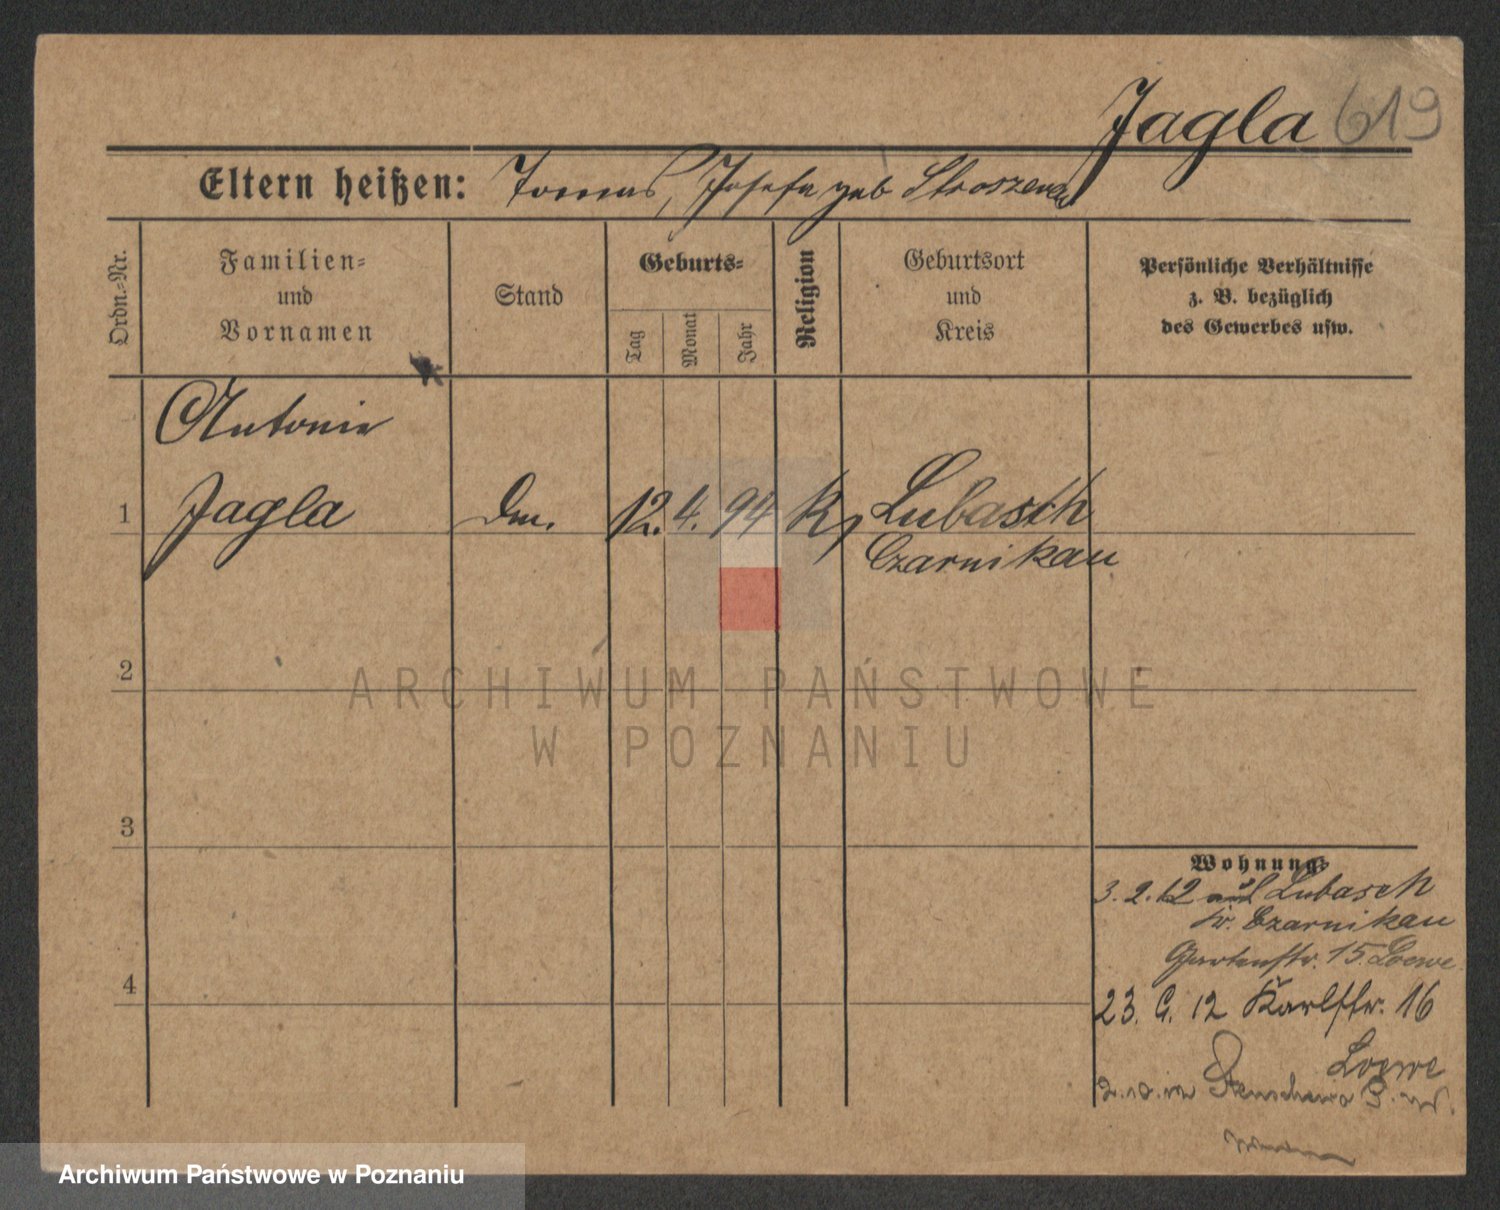 Jagla 619
Eltern heißen: Tomas, Josefa geb
Ordn.-Nr.
Familien-
und
Vornamen
Stand
Geburts-
Tag
Monat
Jahr
Religion
Geburtsort
und
Kreis
Persönliche Verhältnisse
z. B. bezüglich
des Gewerbes usw.
Antonie
1 Jagla 12. 4. 94 Lubasch
Czarnikau
2
ARCHIWUM PAŃSTWOWE
W POZNANIU
3
Wohnung:
3. 2. 12 aus Lubasch
Kr. Czarnikau
Gartenstr. 15. Loewe
4
23. 12 Karlstr. 16
Loewe
Archiwum Państwowe w Poznaniu